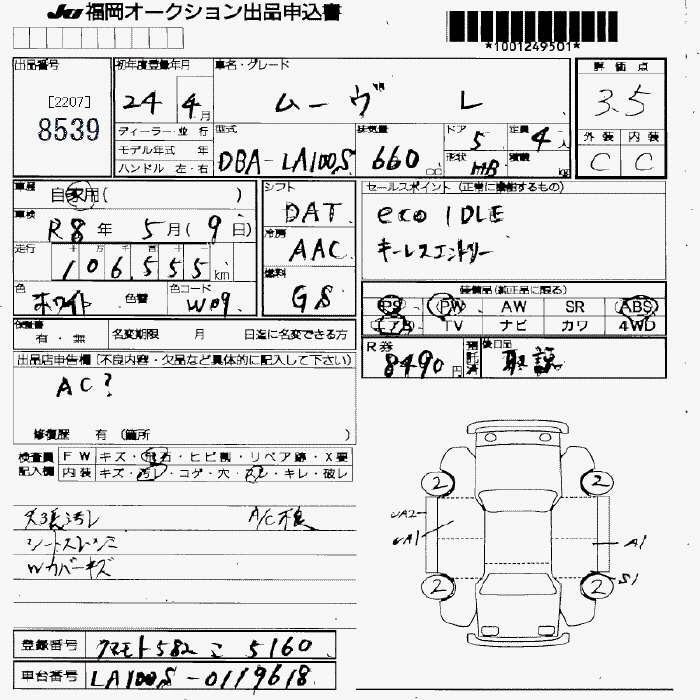 JU 福岡オークション出品申込書
*1001249501*
出品番号 [2207] 8539
初年度登録年月 24年 4月
車名・グレード ムーヴ L
評価点 3.5
ディーラー・並行
モデル年式 年
ハンドル 左・右
型式 DBA-LA100S
排気量 660 cc
ドア 5
形状 HB
定員 4人
積載 kg
外装 C 内装 C
車歴 自家用( )
車検 R8年 5月(9日)
走行 106,555km
色 ホワイト 色替 色コード W09
シフト DAT
冷房 AAC
燃料 GS
セールスポイント (正常に機能するもの)
eco IDLE
キーレスエントリー
装備品(純正品に限る)
PS PW AW SR ABS
エアB TV ナビ カワ 4WD
保証書 有・無 名変期限 月 日迄に名変できる方
R券 8490円 預託済 後日品 取説
出品店申告欄(不良内容・欠品など具体的に記入して下さい)
AC?
修復歴 有 (箇所 )
検査員 FW キズ・飛石・ヒビ割・リペア跡・X要
記入欄 内装 キズ・汚レ・コゲ・穴・スレ・キレ・破レ
A/C不良
シートスレシミ
Wカバーキズ
2 2
UA2
UA1
A1
S1
2 2
登録番号 クマモト582 こ 5160
車台番号 LA100S-0119618